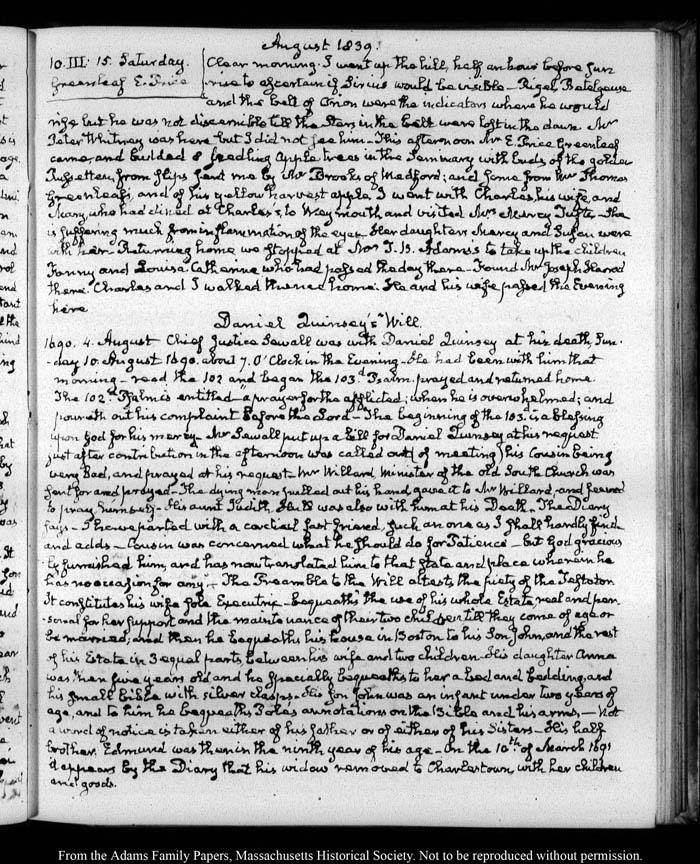 August 1839.
10. III: 15. Saturday.
Greenleaf E. Price
Clear morning. I went up the hill, half an hour before Sun
rise to ascertain if Sirius would be visible – Rigel, Betelgeuse
and the belt of Orion were the indicators where he would
rise but he was not discernible till the Stars in the belt were lost in the dawn Mr
Peter Whitney was here but I did not see him – This afternoon Mr E. Price Greenleaf
came, and budded 8 seedling apple trees in the Seminary with buds of the golden
Russetten, from slips sent me by Mr Brooks of Medford; and some from Mr Thomas
Greenleaf's, and of his yellow harvest apple. I went with Charles, his wife, and
Mary, who had dined at Charles's, to Weymouth and visited Mrs Mercy Tufts – She
is suffering much from inflammation of the eyes – Her daughters Mercy and Susan were
with her. Returning home we stopped at Mrs T. B. Adams's to take up the children
Fanny and Louisa Catherine who had passed the day there – Found Mr Joseph Harod
there. Charles and I walked thence home. He and his wife passed the Evening
here
Daniel Quinsey's Will
1690. 4. August Chief Justice Sewall was with Daniel Quinsey at his death, Sun-
-day 10. August 1690. about 7. O'Clock in the Evening – He had been with him that
morning – read the 102 and began the 103.d Psalm. prayed and returned home.
The 102nd Psalm is entitled – a prayer for the afflicted; when he is overwhelmed; and
poureth out his complaint before the Lord – The beginning of the 103.d is a blessing
upon God for his mercy – Mr Sewall put up a bill for Daniel Quinsey at his request
just after contribution in the afternoon was called out (of meeting) his Cousin being
very Bad, and prayed at his request – Mr Willard Minister of the old South Church was
sent for and prayed – The dying man pulled out his hand, gave it to Mr Willard, and
to pray himself – His aunt Judith Hull was also with him at his Death. The Diary
says – I have parted with a cordial fast friend, such an one as I shall hardly find.
and adds – Cousin was concerned what he should do for Patience – but God gracious
ly furnished him, and has now translated him to that State and place wherein he
has no occasion for any" – The Preamble to the Will attests the piety of the Testator
It constitutes his wife sole Executrix – bequeaths the use of his whole Estate, real and per-
-sonal for her support and the maintenance of their two children till they come of age or
be married; and then he bequeaths his house in Boston to his Son John, and the rest
of his Estate in 3 equal parts, between his wife and two children – His daughter Anna
was then five years old and he specially bequeaths to her a bed and bedding, and
his small bible with silver clasps – His son John was an infant under two years of
age, and to him he bequeaths Pole's annotations on the Bible and his arms, – Not
a word of notice is taken either of his father or of either of his Sisters – His half
brother, Edmund was then in the ninth year of his age – On the 10th of March 1691
it appears by the Diary that his widow removed to Charlestown with her children
and goods.
From the Adams Family Papers, Massachusetts Historical Society. Not to be reproduced without permission.